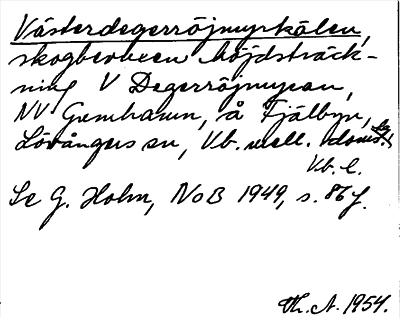 Västerdegerröjmyrkälen,
skogbevuxen höjdsträck-
ning V Degerröjmyran,
NV Gumhamn, å Fjälbyn,
Lövångers sn, Vb. mell. domsa.
Vb. l.
Se G. Holm, NoB 1949, s. 86 f.
Th. A. 1954.